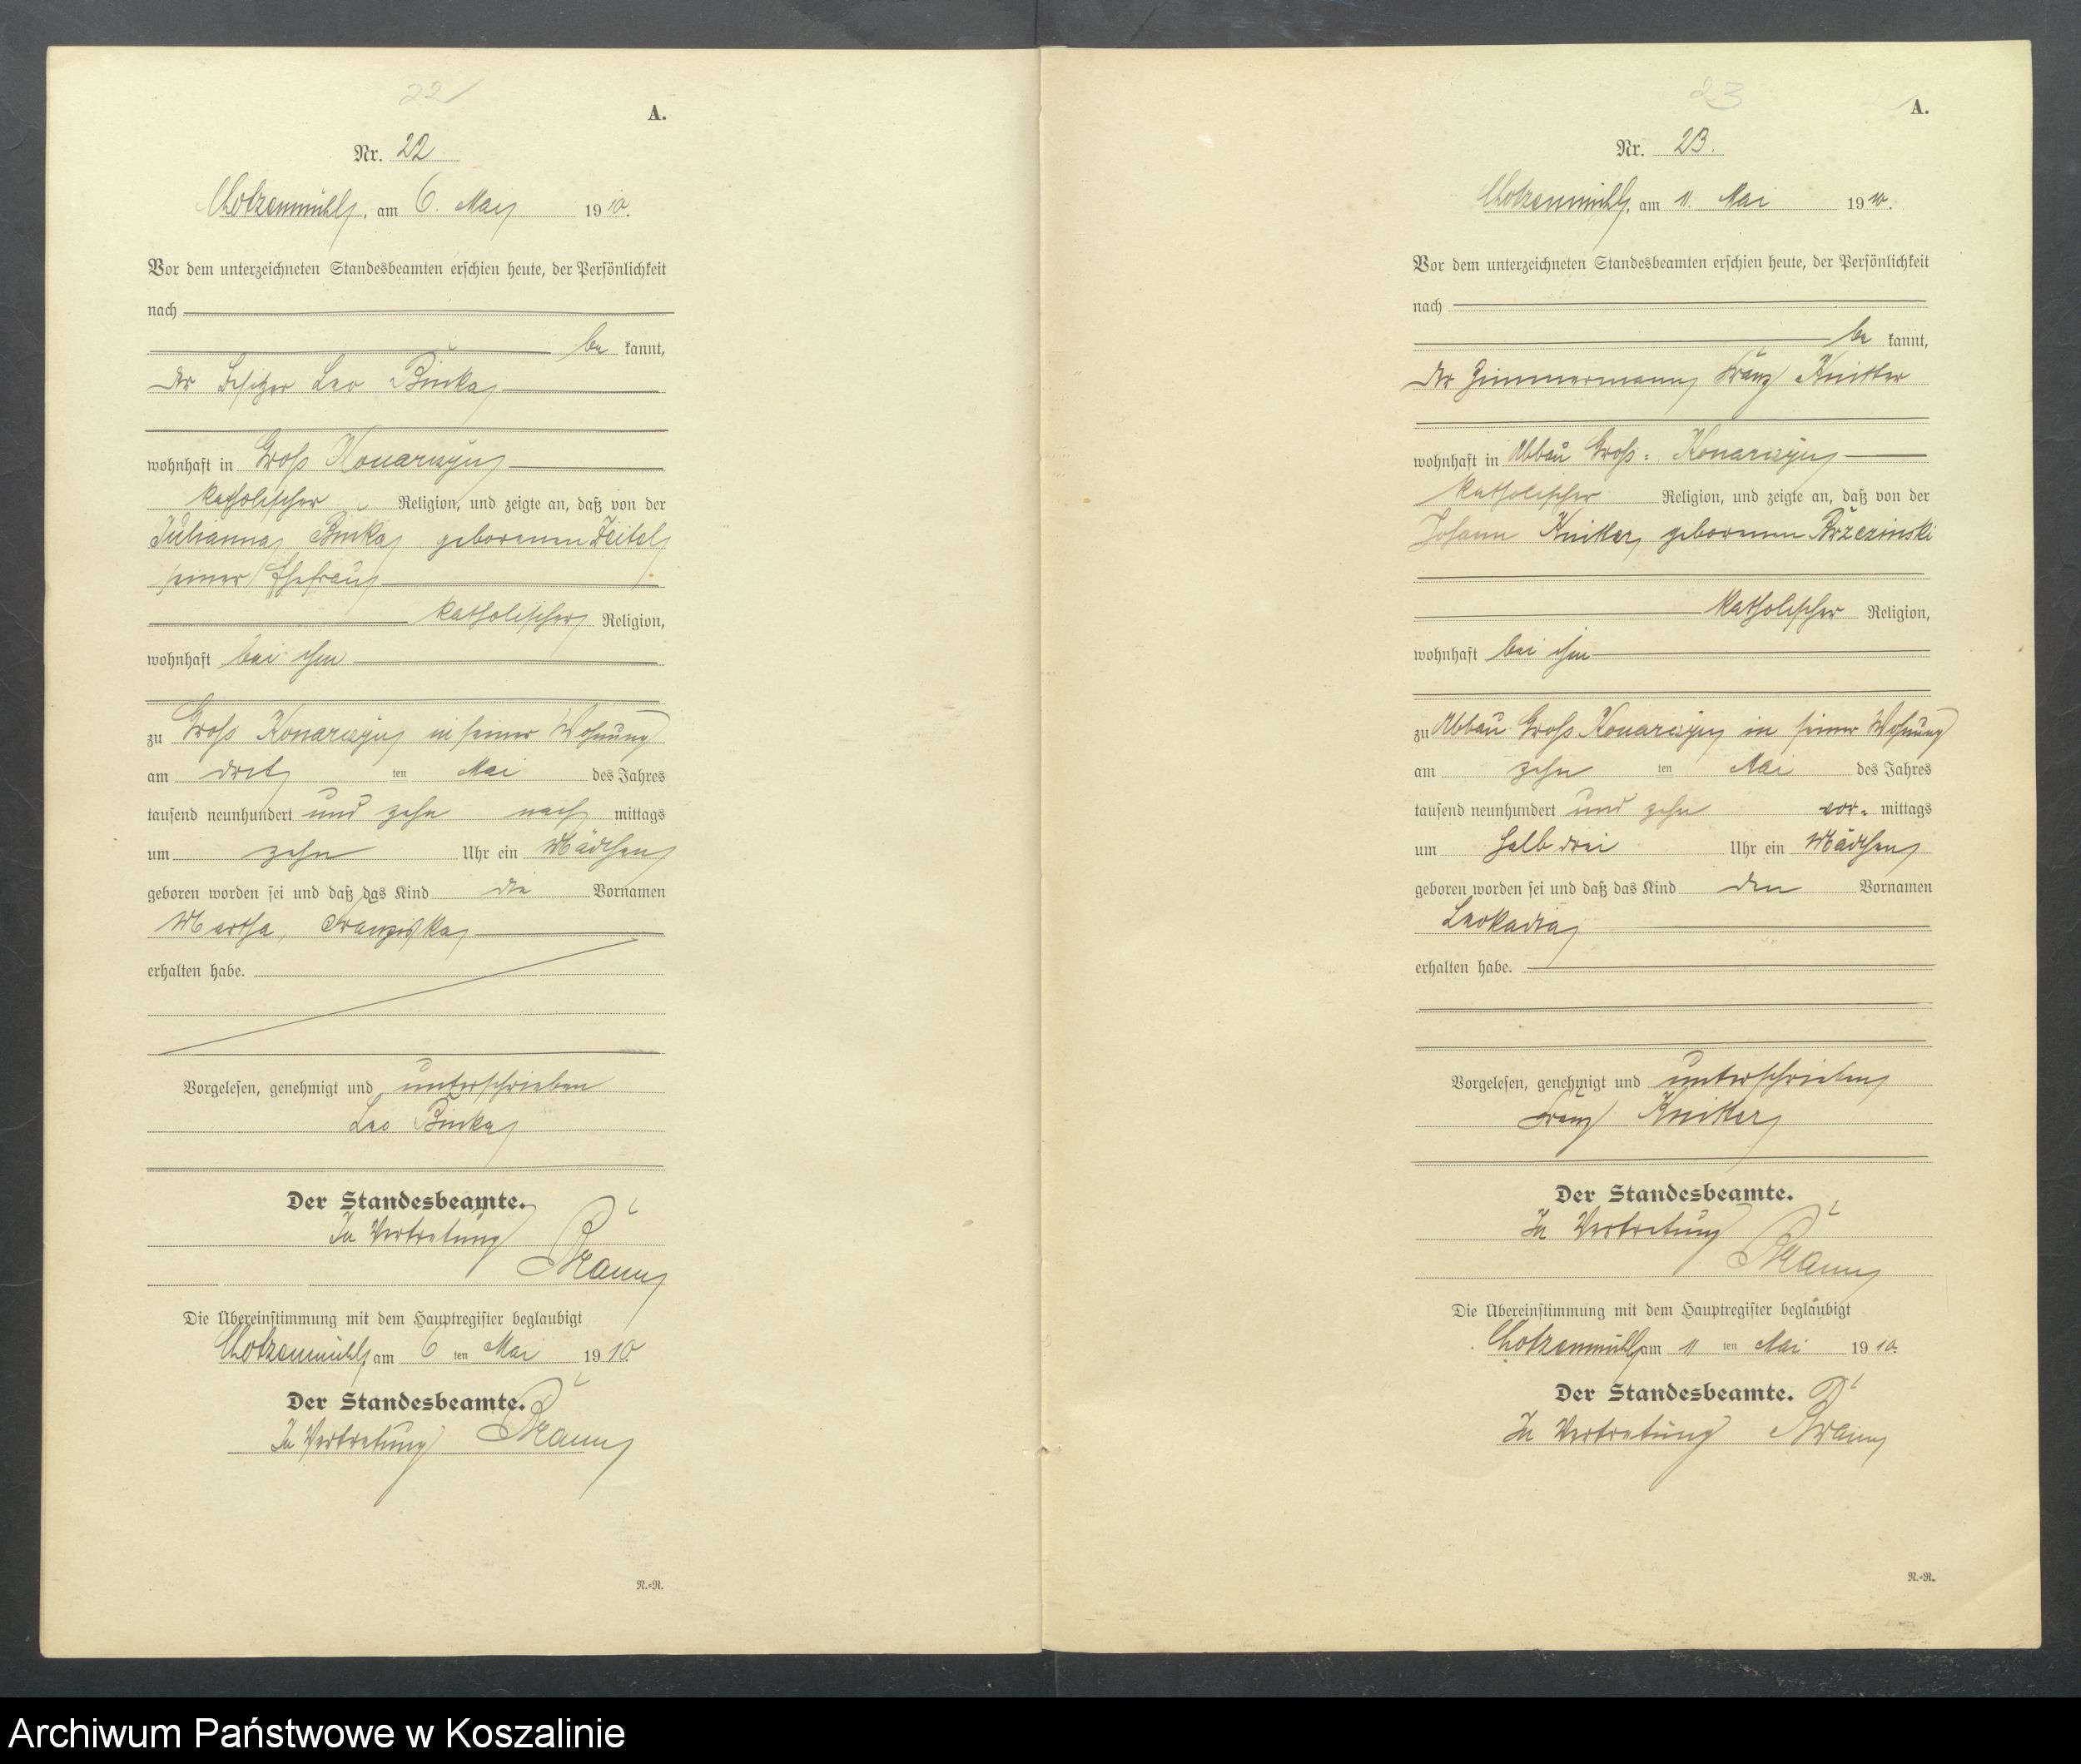 22
A.
Nr. 22
Chotzenmühl, am 6. May 1910.
Vor dem unterzeichneten Standesbeamten erschien heute, der Persönlichkeit
nach
be kannt,
der Besitzer Leo
wohnhaft in Groß Konarczyn
katholischer Religion, und zeigte an, daß von der
Julianna geborenen Zeitel
seiner Ehefrau
katholischer Religion,
wohnhaft bei ihm
zu Groß Konarczyn in seiner Wohnung
am drit ten Mai des Jahres
tausend neunhundert und zehn nach mittags
um zehn Uhr ein Mädchen
geboren worden sei und daß das Kind die Vornamen
Martha, Franziska
erhalten habe.
Vorgelesen, genehmigt und unterschrieben
Leo
Der Standesbeamte.
In Vertretung
Die Übereinstimmung mit dem Hauptregister beglaubigt
Chotzenmühl am 6 ten Mai 1910.
Der Standesbeamte.
In Vertretung
N.=R.
23
A.
Nr. 23.
Chotzenmühl, am 11. Mai 1910.
Vor dem unterzeichneten Standesbeamten erschien heute, der Persönlichkeit
nach
be kannt,
der Zimmermann Franz Knitter
wohnhaft in Abbau Groß= Konarczyn
katholischer Religion, und zeigte an, daß von der
Johann Knitter, geborenen Brzezinski
katholischer Religion,
wohnhaft bei ihm
zu Abbau Groß Konarczyn in seiner Wohnung
am zehn ten Mai des Jahres
tausend neunhundert und zehn vor= mittags
um halb drei Uhr ein Mädchen
geboren worden sei und daß das Kind den Vornamen
Leokadia
erhalten habe.
Vorgelesen, genehmigt und unterschrieben
Franz Knitter
Der Standesbeamte.
In Vertretung
Die Übereinstimmung mit dem Hauptregister beglaubigt
Chotzenmühl am 11 ten Mai 1910.
Der Standesbeamte.
In Vertretung
N.=R.
Archiwum Państwowe w Koszalinie